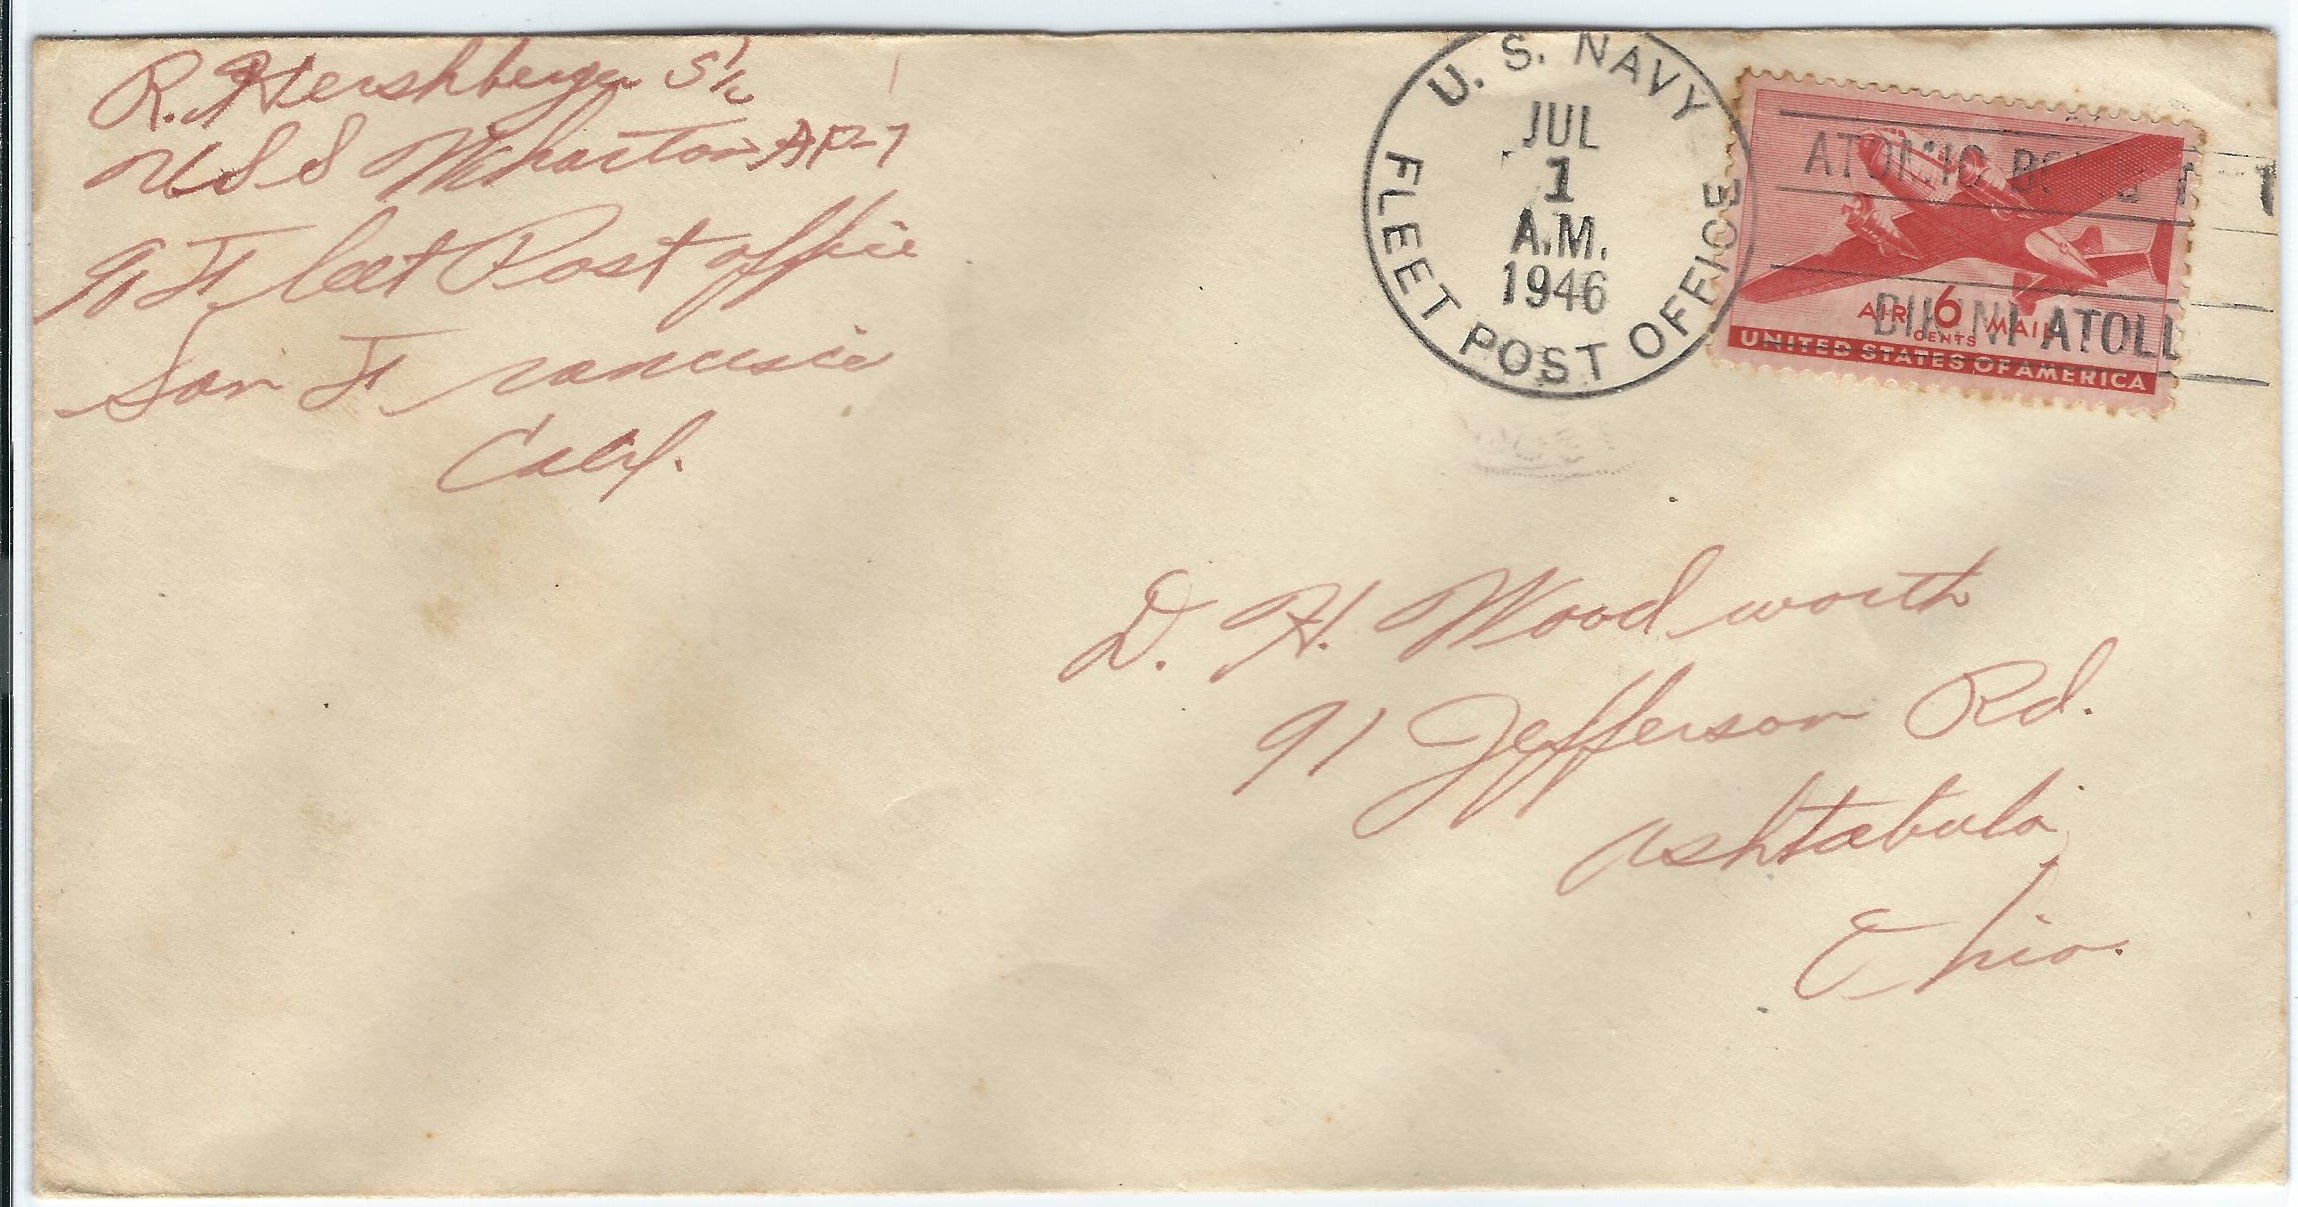 R. Hershberger S 1/c
USS Wharton AP-7
℅ Fleet Post office
San Francisco
Calif.
U. S. NAVY
JUL
1
A.M.
1946
FLEET POST OFFICE
ATOMIC BOMB TEST
BIKINI ATOLL
AIR 6 MAIL
CENTS
UNITED STATES OF AMERICA
D. H. Woodworth
91 Jefferson Rd.
Ashtabula,
Ohio.